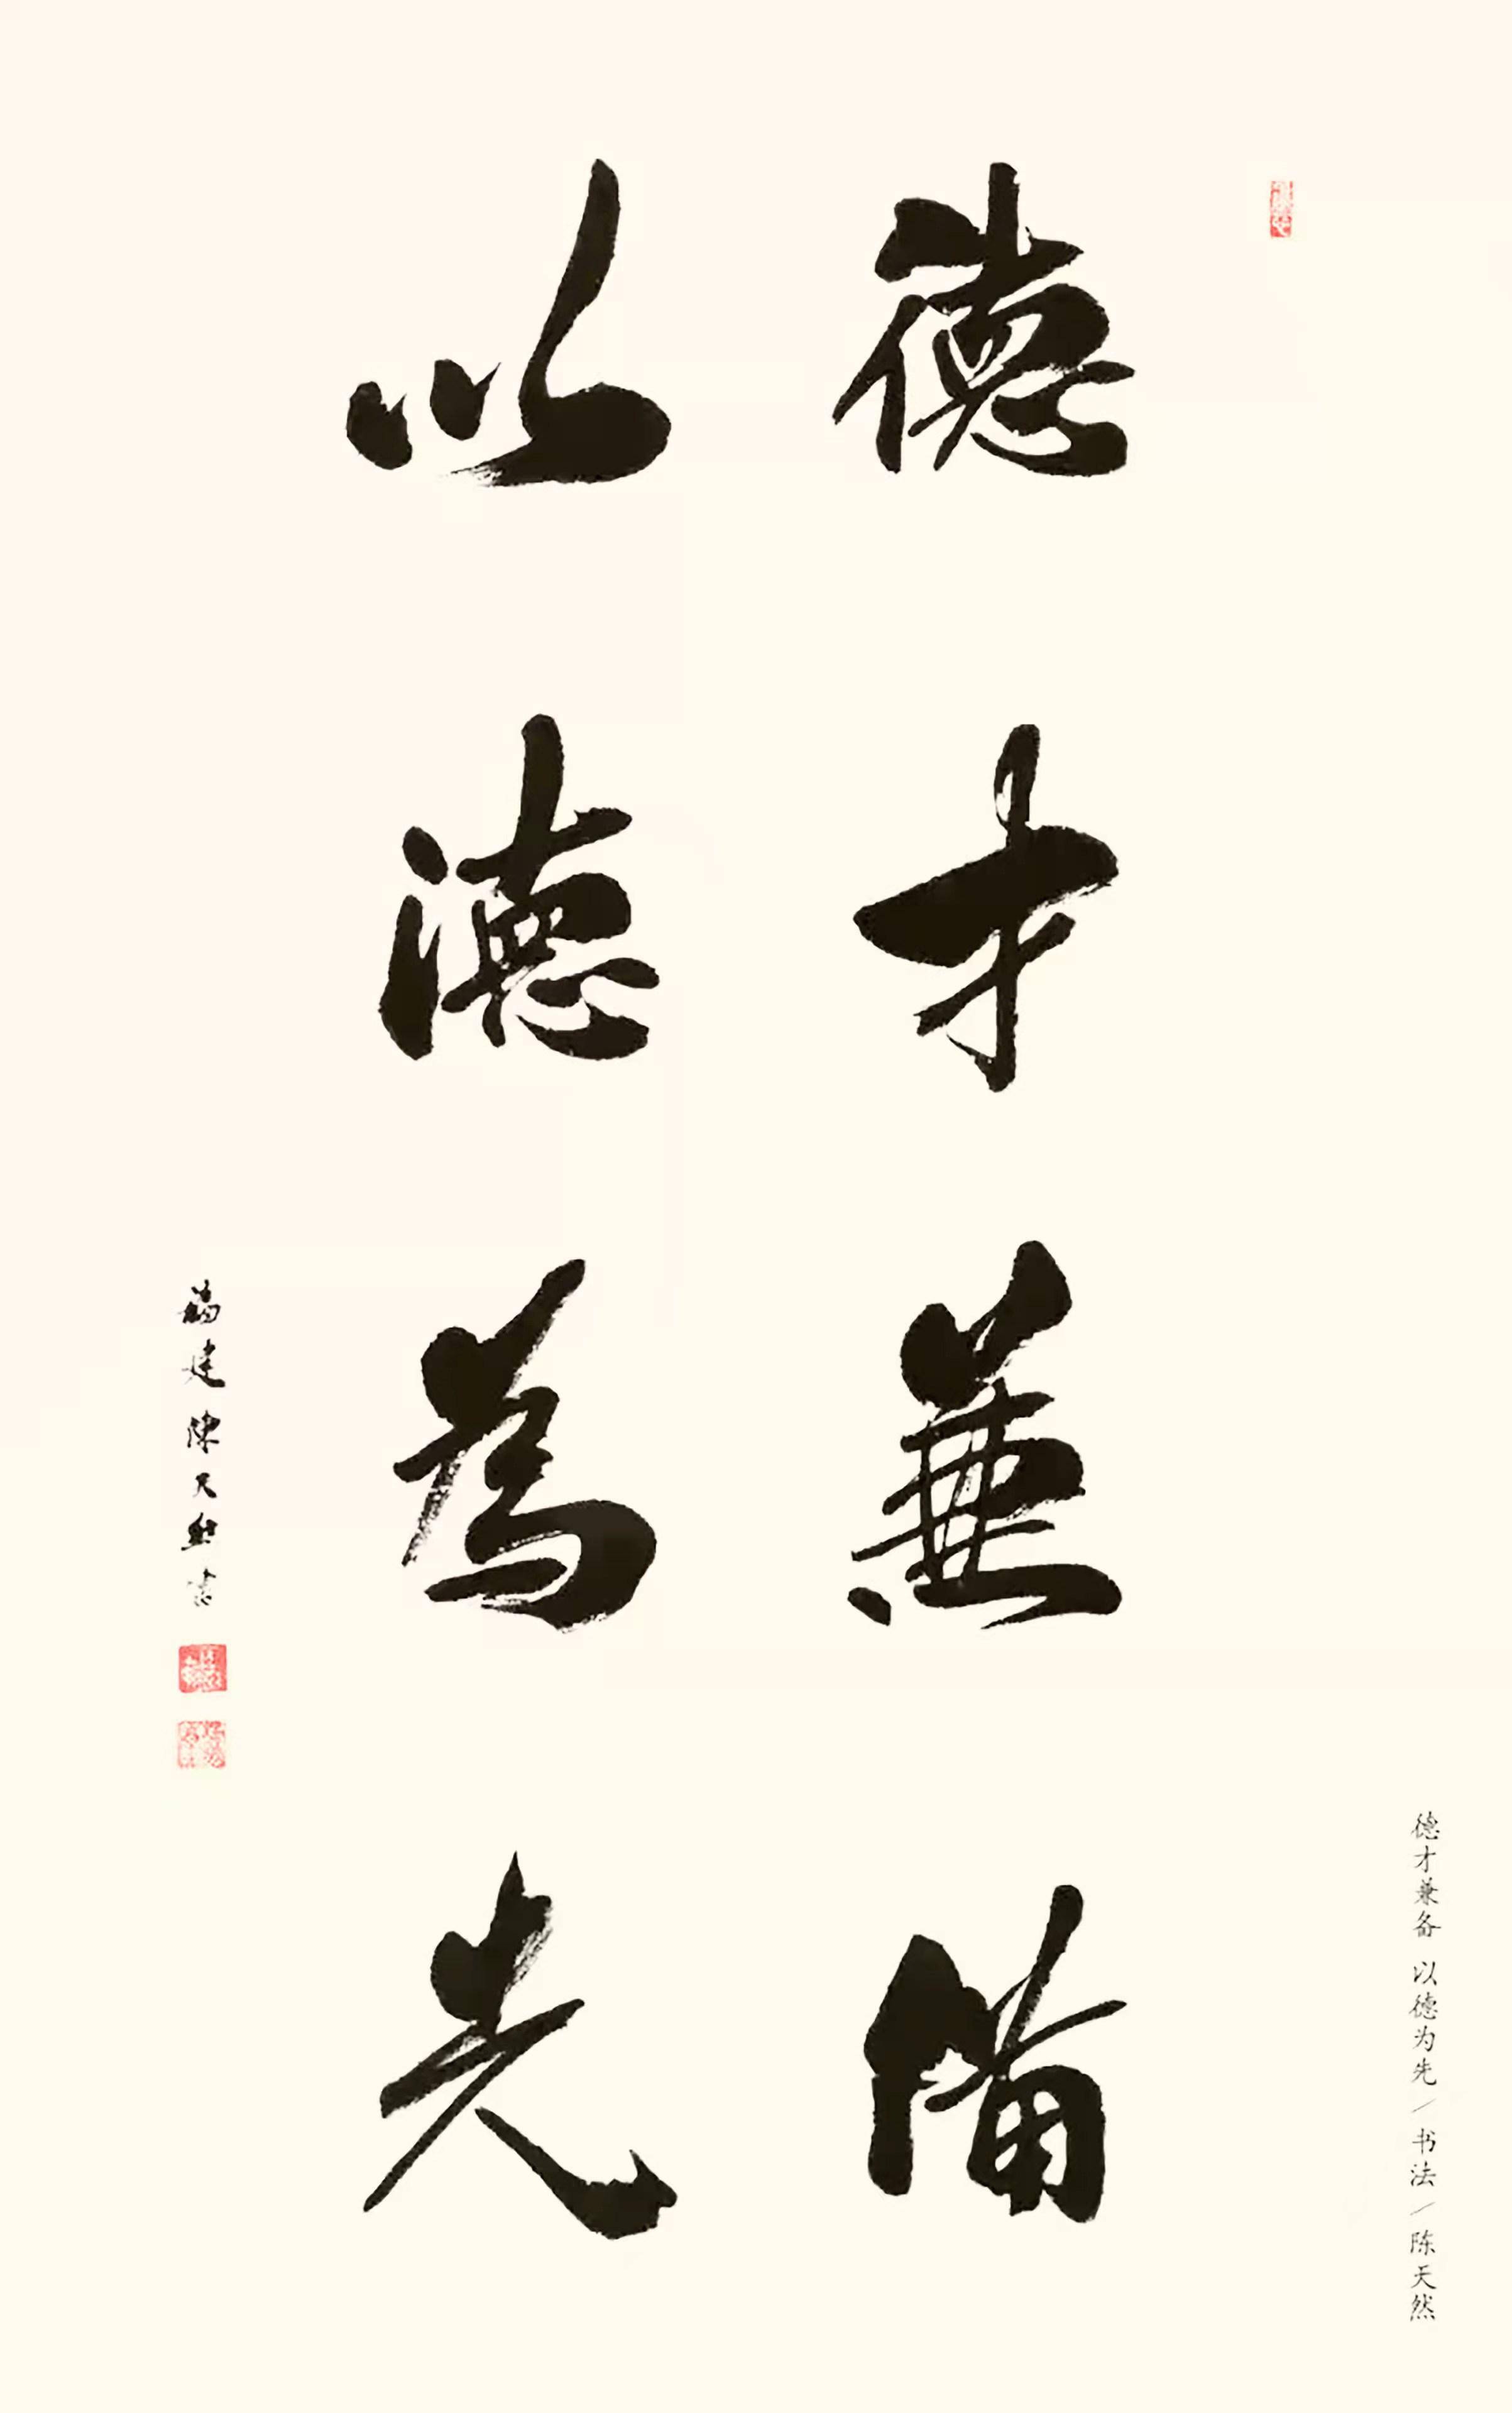 德才兼備
以德為先
福建陳天然書
德才兼备 以德为先/书法/陈天然